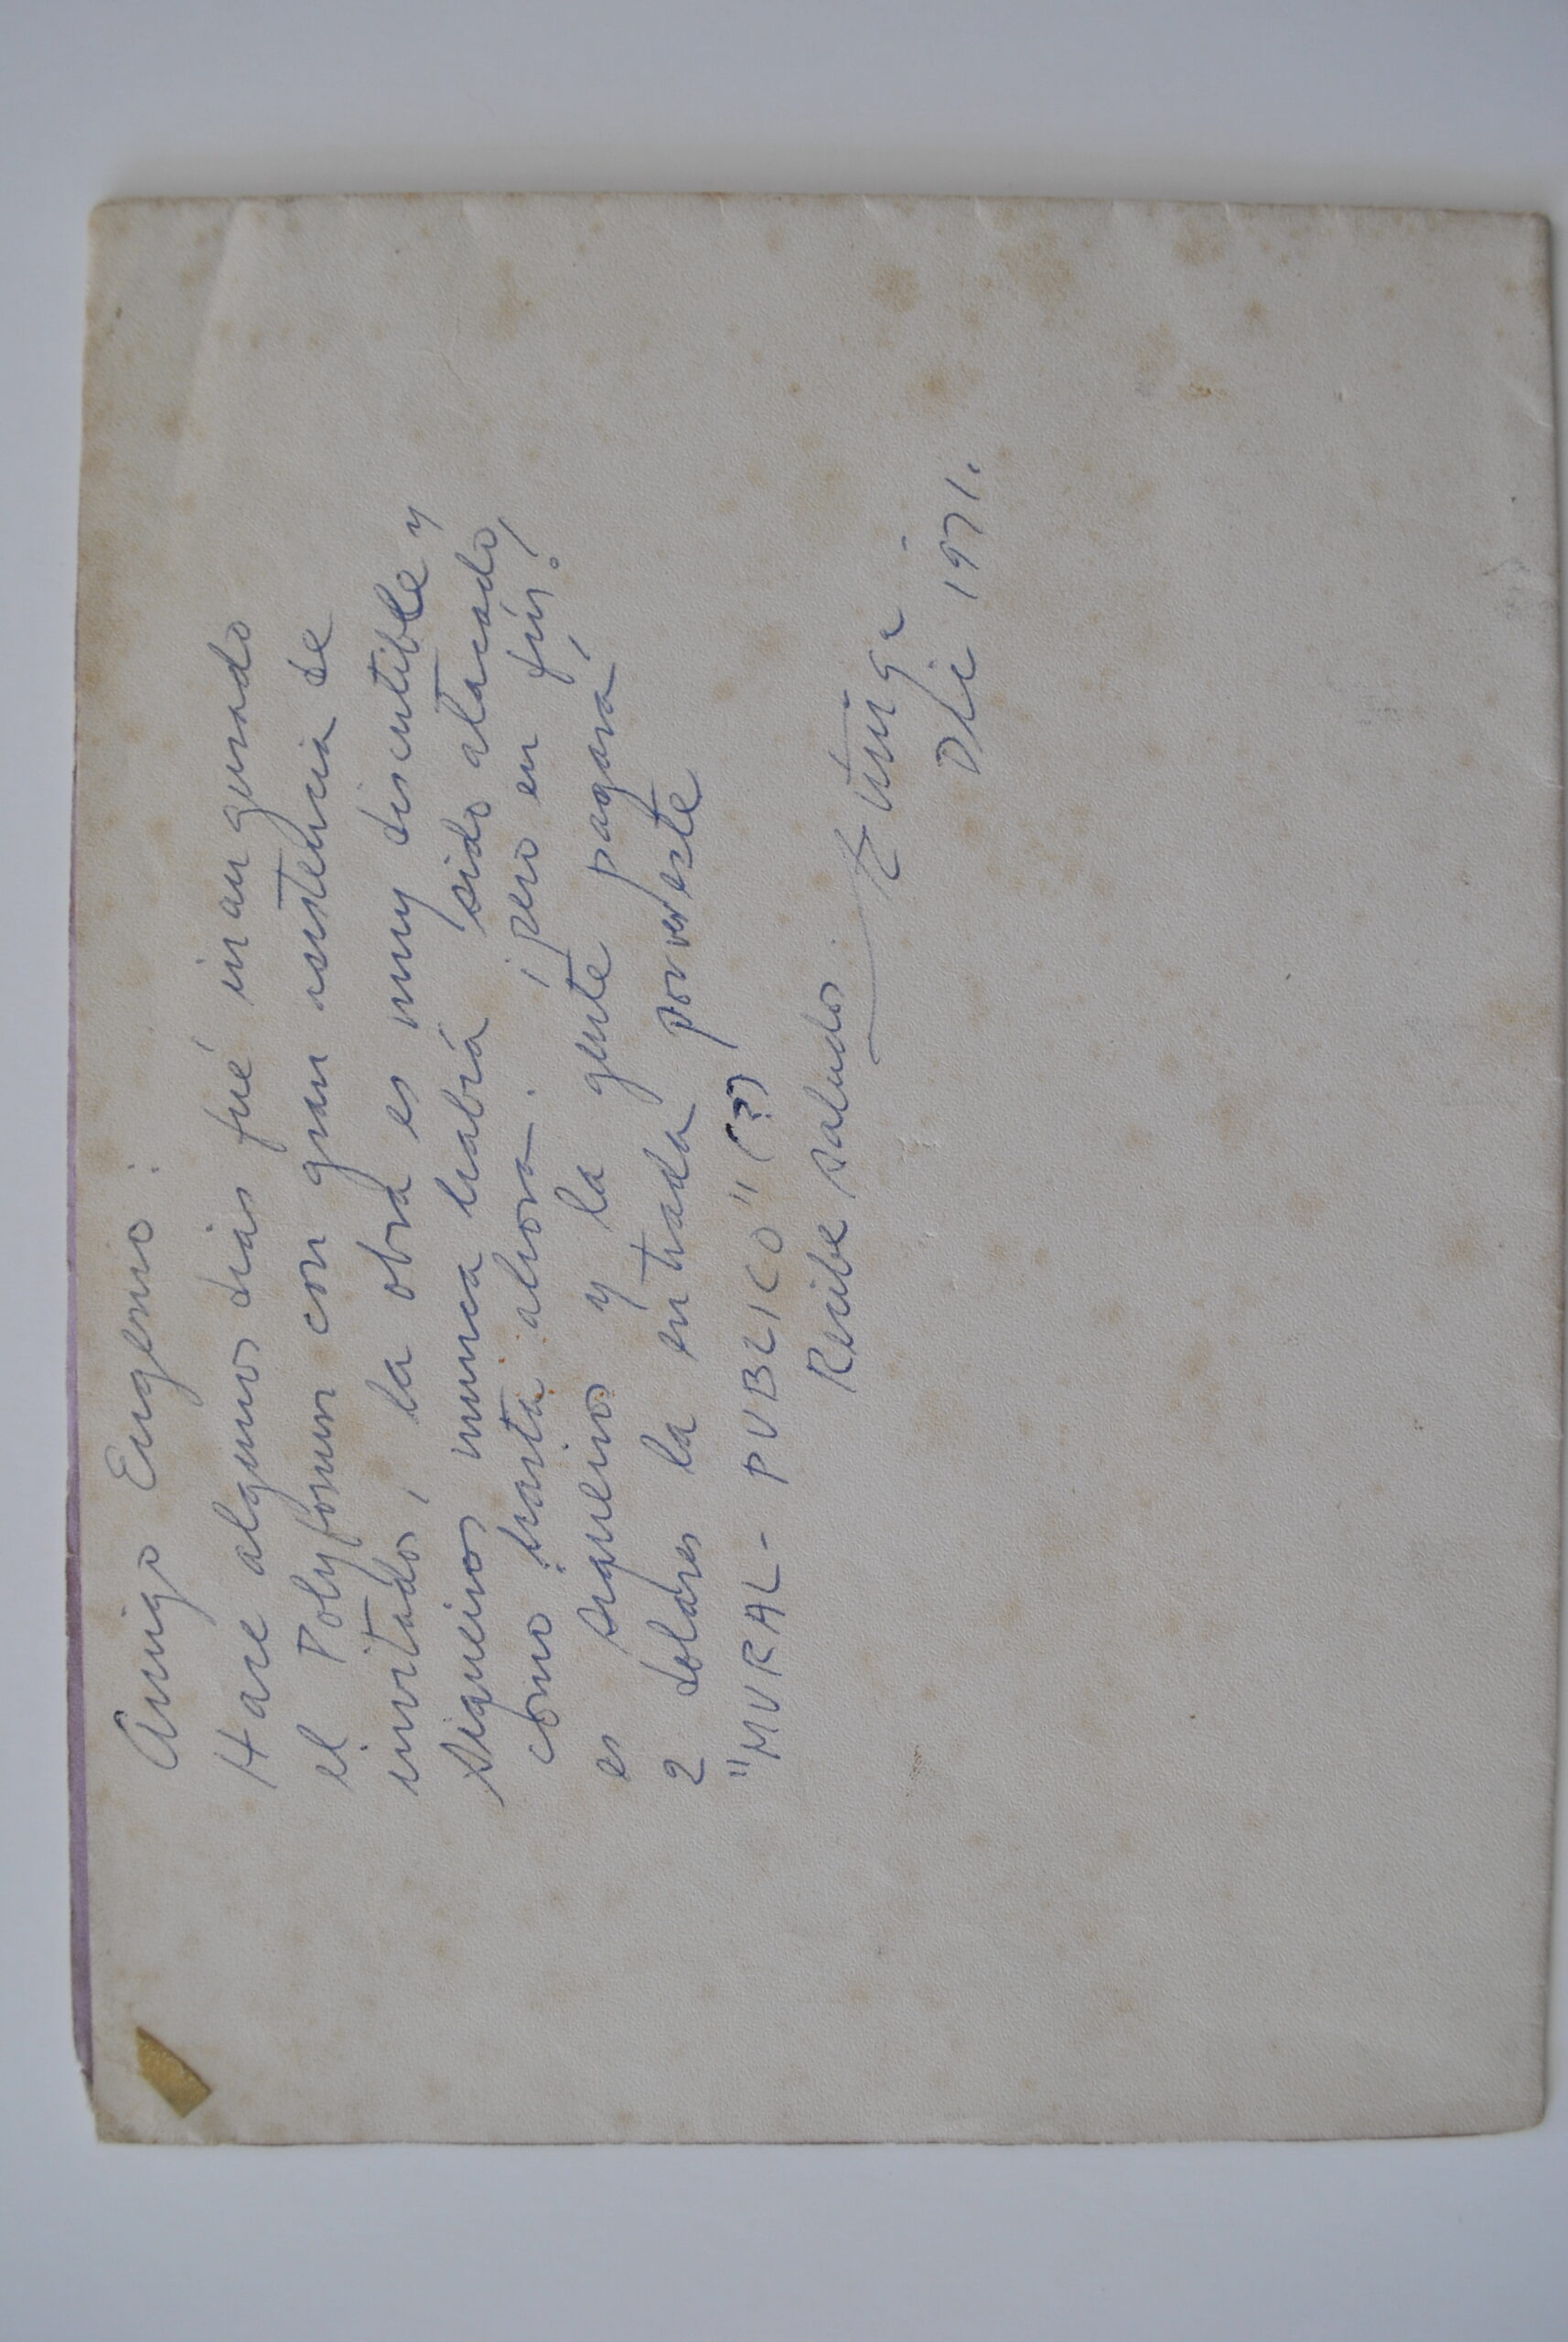 Amigo Eugenio:
Hace algunos dias fué inaugurado
el Polyforum con gran asistencia de
invitados, la obra es muy discutible y
Siqueiros nunca habiá sido atacado,
como hasta ahora. ¡pero en fin!
es Siqueiros y la gente pagará
2 dolares la entrada por ver este
"MURAL- PUBLICO" (?)
Recibe saludos.
Dic 1971.